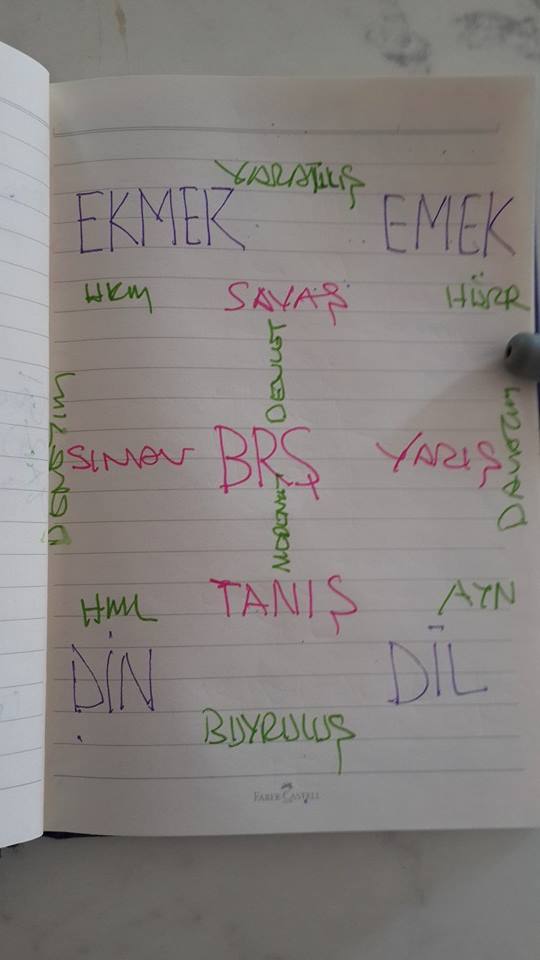 YARATILIŞ
EKMEK EMEK
HKM SAVAŞ HÜRR
DEVLET
DENEYİM SINAV BRŞ YARIŞ
TANIŞ
HML AYN
DİN DİL
BUYRULUŞ
FABER-CASTELL